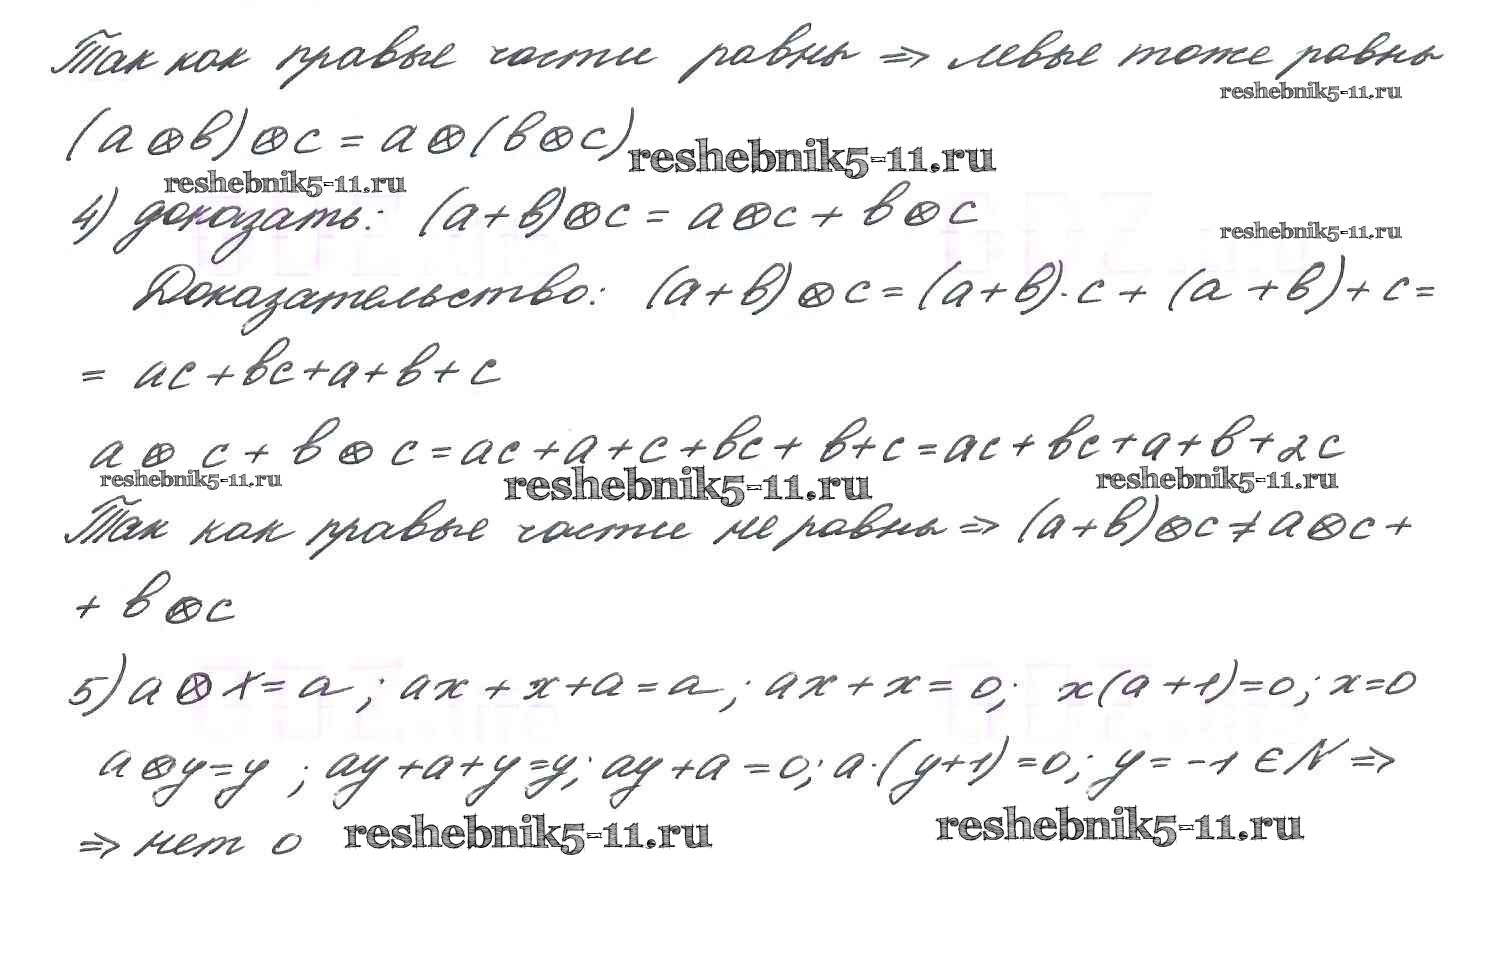 Так как правые части равны => левые тоже равны
reshebnik5-11.ru
(a⊗в)⊗c = a⊗(в⊗c)
reshebnik5-11.ru
reshebnik5-11.ru
4) доказать: (a+в)⊗c = a⊗c + в⊗c
reshebnik5-11.ru
Доказательство: (a+в)⊗c = (a+в)·c + (a+в)+c =
= ac+вc+a+в+c
a⊗c + в⊗c = ac+a+c+вc+в+c = ac+вc+a+в+2c
reshebnik5-11.ru
reshebnik5-11.ru
reshebnik5-11.ru
Так как правые части не равны => (a+в)⊗c ≠ a⊗c +
+ в⊗c
5) a⊗x = a; ax+x+a = a; ax+x = 0; x(a+1)=0; x=0
a⊗y=y; ay+a+y=y; ay+a=0; a·(y+1)=0; y=-1 ∈ N =>
=> нет 0
reshebnik5-11.ru
reshebnik5-11.ru